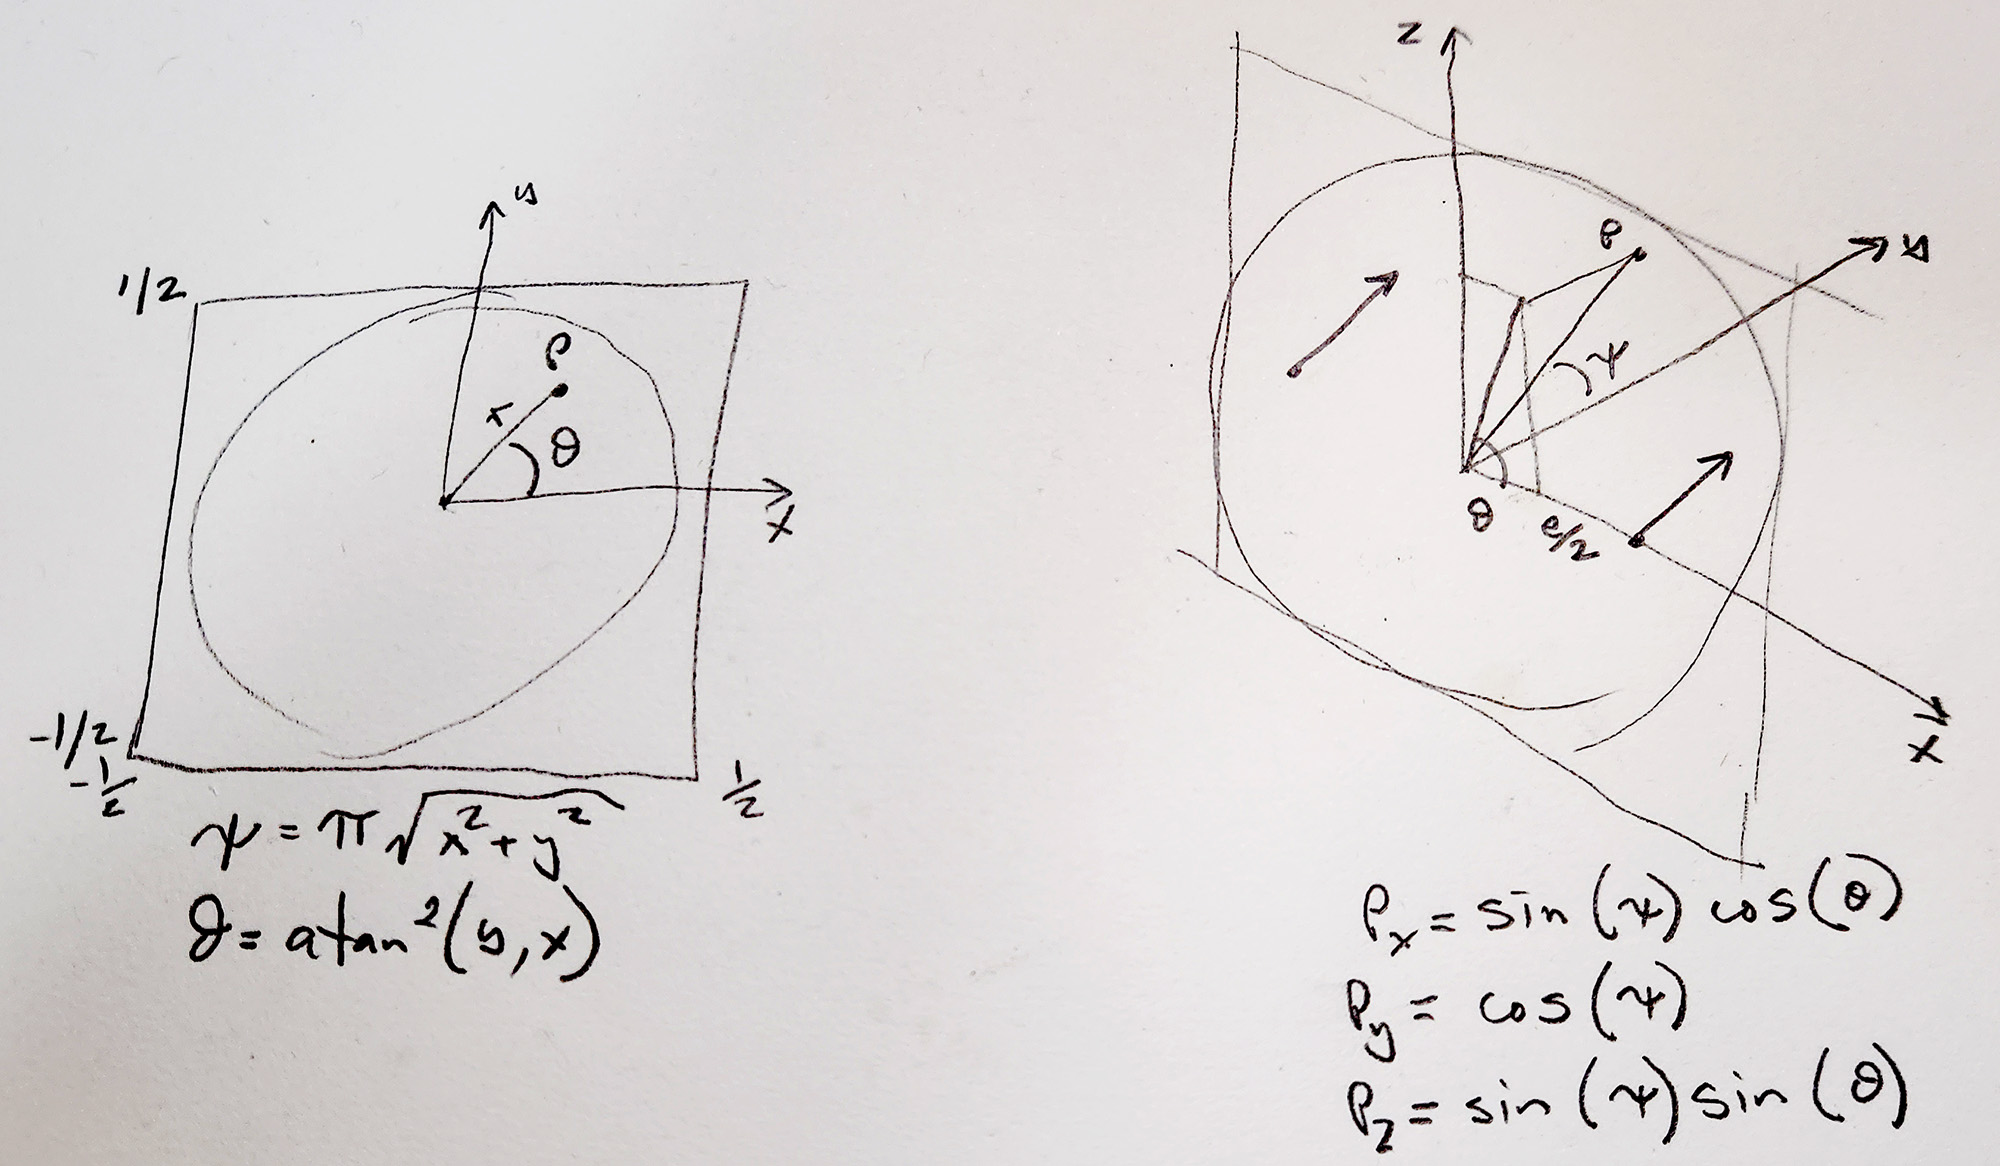 y
1/2
P
r
θ
x
-1/2
-1/2
1/2
ψ = π √x² + y²
θ = atan²(y, x)
z
P
y
ψ
θ
e/2
x
Px = sin(ψ) cos(θ)
Py = cos(ψ)
Pz = sin(ψ) sin(θ)